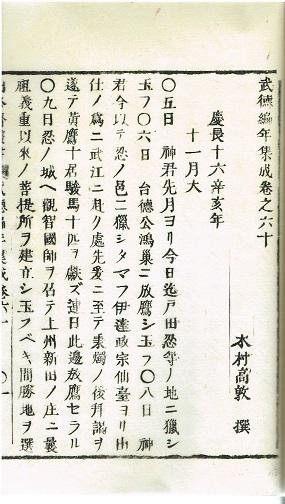 武德編年集成卷之六十
木村高敦 撰
慶長十六辛亥年
十一月大
〇五日 神君先月ヨリ今日迄戸田忍等ノ地ニ獵シ
玉フ〇六日 台德公鴻巢ニ放鷹シ玉フ〇八日 神
君今以テ忍ノ邑ニ獵シタマフ伊達政宗仙臺ヨリ出
仕ノ爲ニ武江ニ赴ク處先爰ニ至テ秉燭ノ後拜謁ヲ
遂テ黃鷹十居駿馬十匹ヲ獻ズ連日此邊放鷹セラル
〇九日忍ノ城ヘ觀智國師ヲ召テ上州新田ノ庄ニ曩
祖義重以來ノ菩提所ヲ建立シ玉フベキ間勝地ヲ選